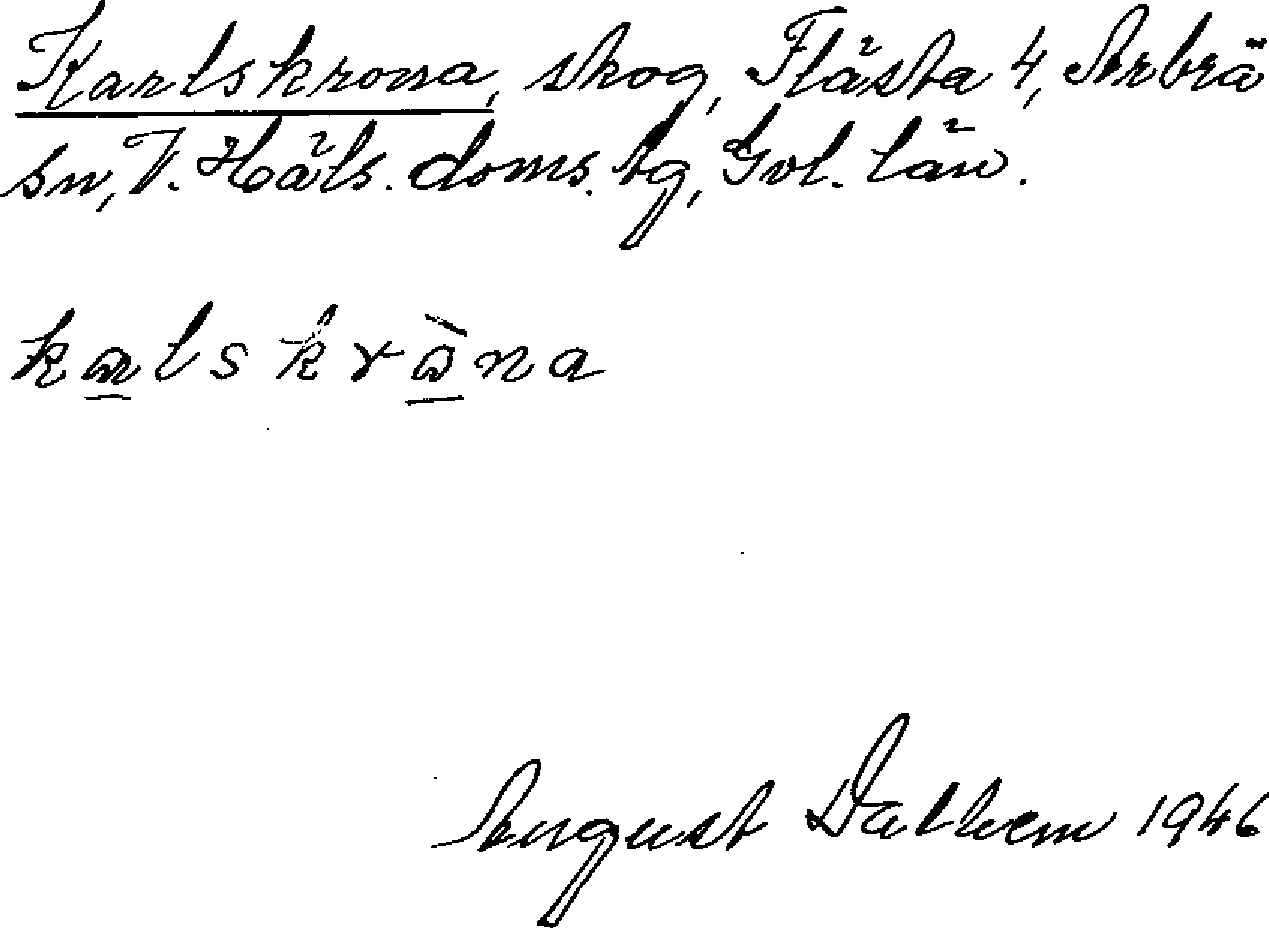 Karlskrona, skog, Flästa 4, Arbrå
sn, V. Häls. doms. tg, Gvl. län.
kalskràna
August Dalhem 1946